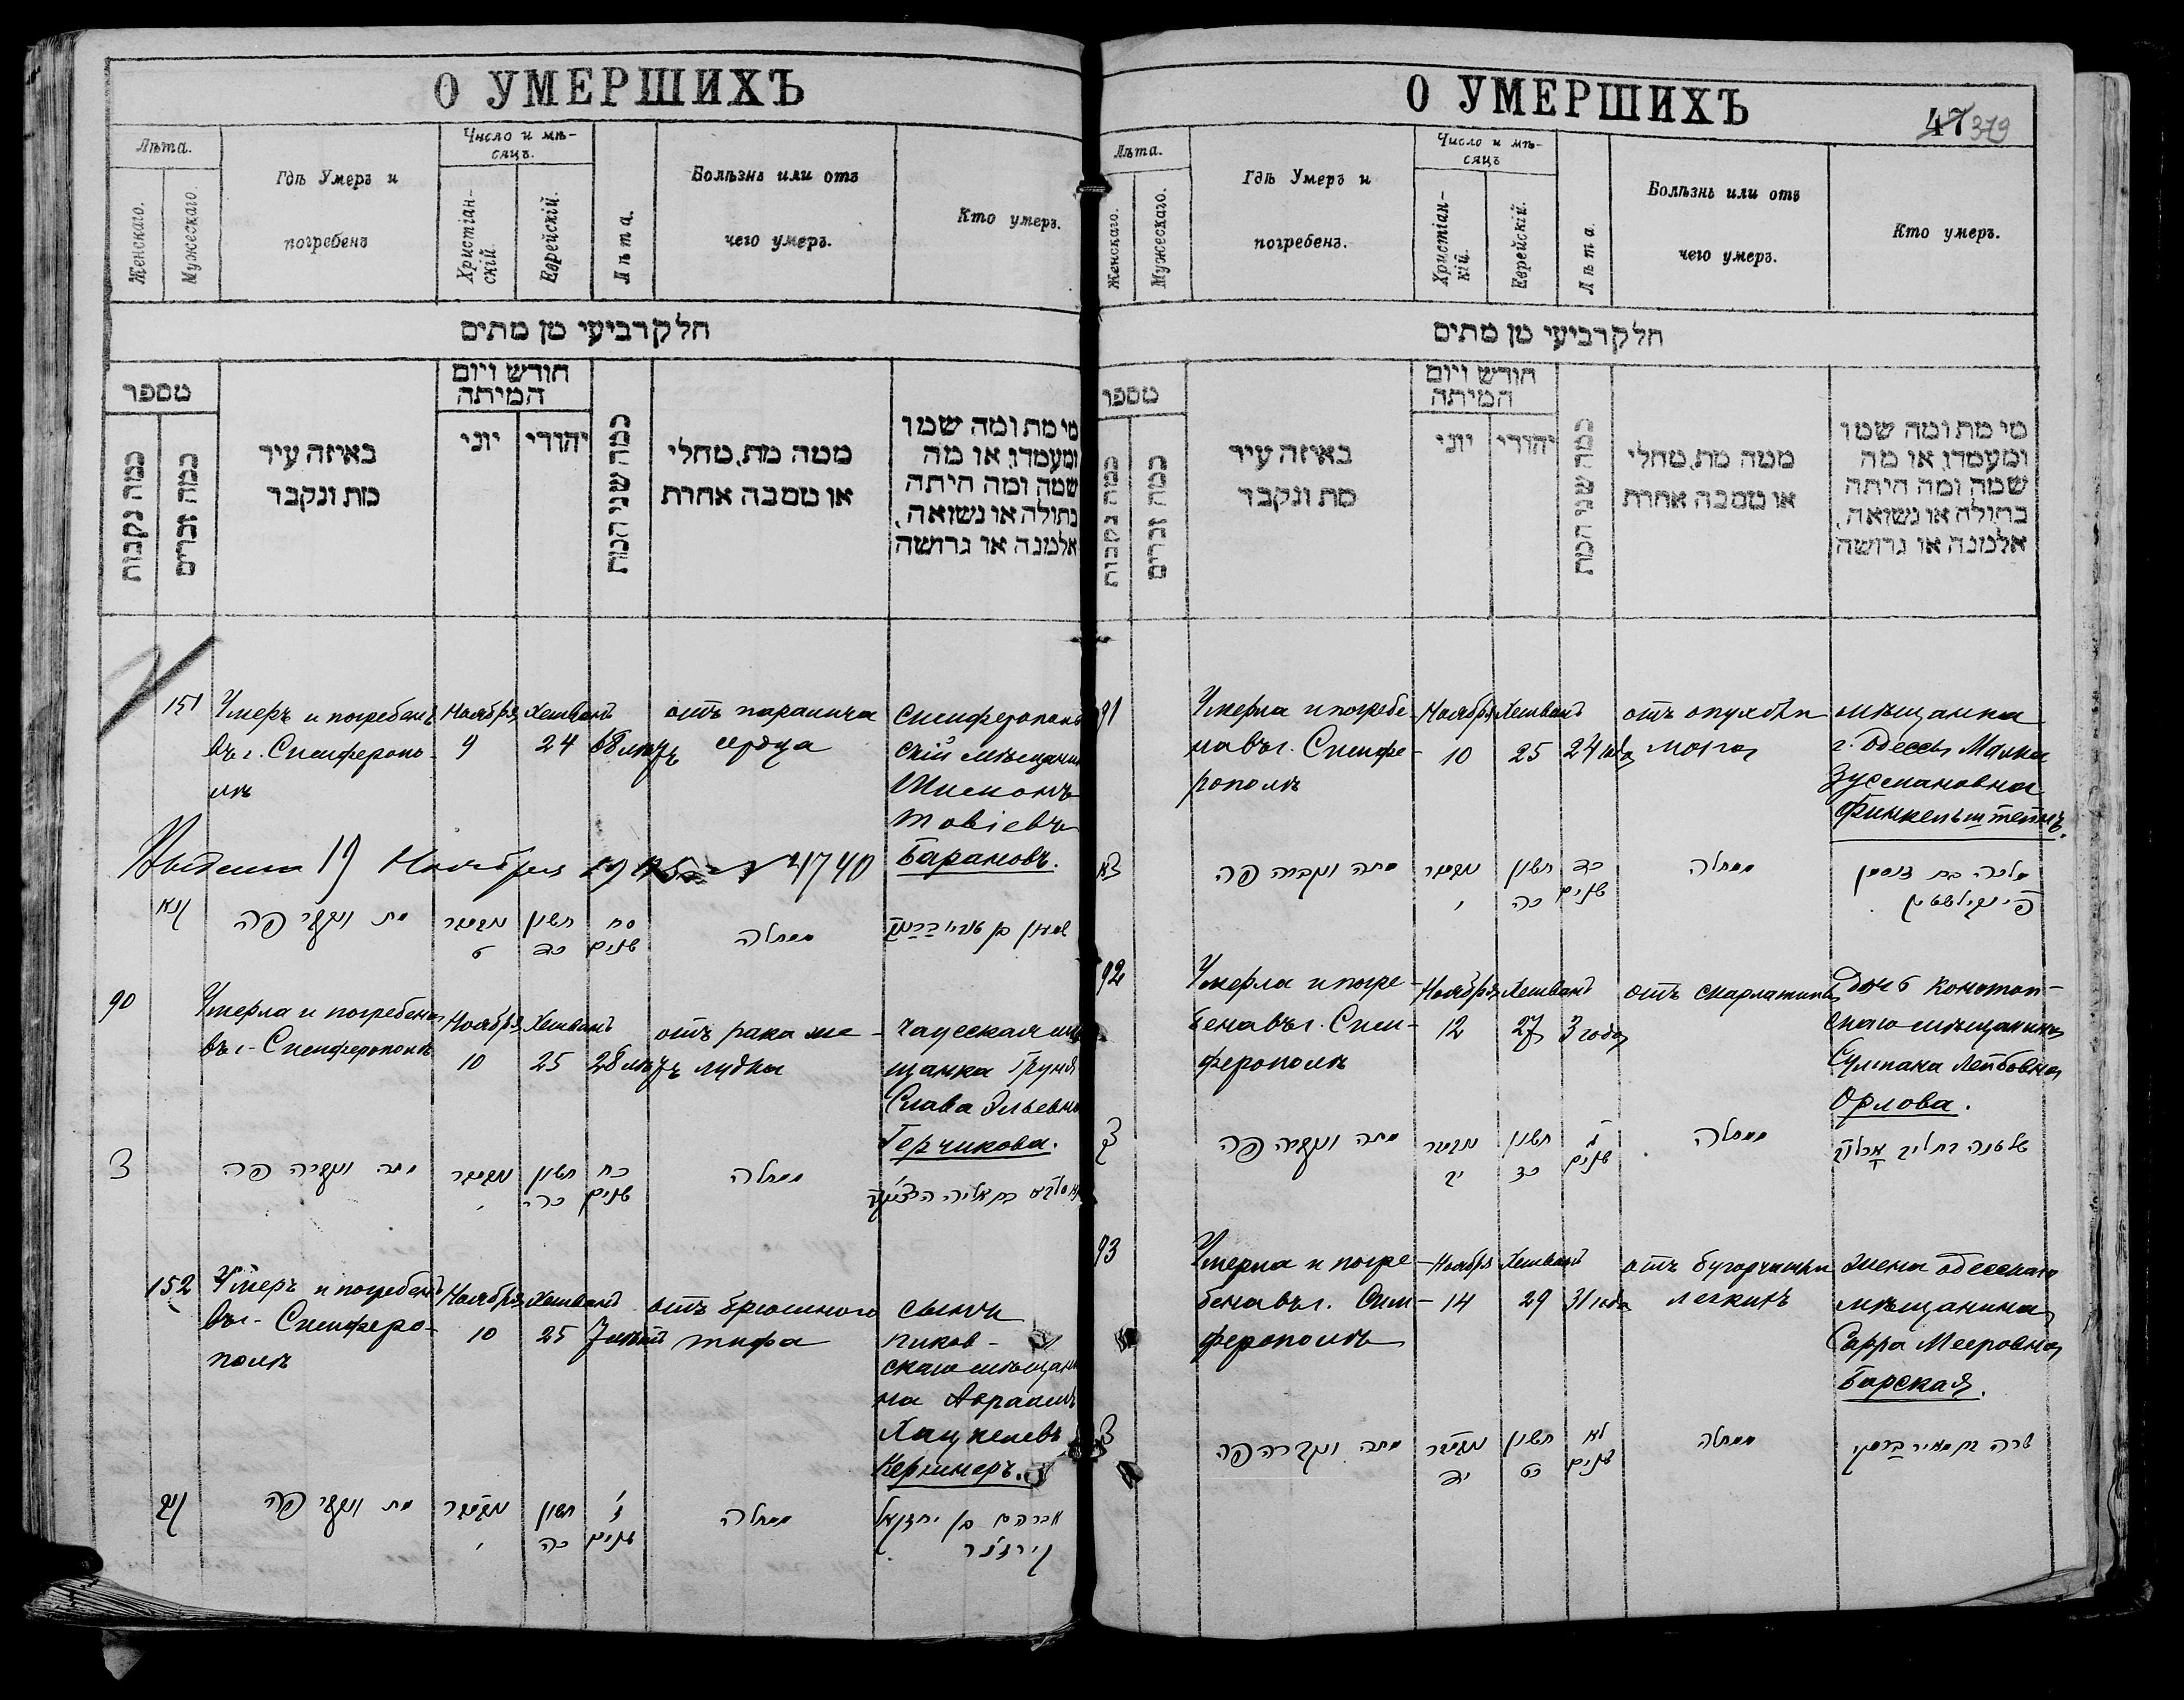 О УМЕРШИХЪ
Лѣта.
Женскаго.
Мужескаго.
Гдѣ Умеръ и
погребенъ
Число и мѣ-
сяцъ.
Христіан-
скій
Еврейскій.
Лѣта.
Болѣзнь или отъ
чего умеръ.
Кто умеръ.
חלק רביעי מן מתים
מספר
כמה נקבות
כמה זכרים
באיזה עיר
מת ונקבר
חודש ויום
המיתה
יוני
יהודי
כמה שני המת
ממה מת, מחלי
או מסבה אחרת
מי מת ומה שמו
ומעמדו, או מה
שמה ומה היתה
בתולה או נשואה,
אלמנה או גרושה
151
Умеръ и погребенъ
въ г. Симферопо-
лѣ
Ноября
9
Хешванъ
24
68 лѣтъ
отъ паралича
сердца
Симферополь
скій мѣщанин
Шимонъ
Товіевъ
Барановъ.
19 Ноября 4740
קנא
מת ונקבר פה
נאוועמבר
ט
חשון
כד
סח
שנים
ממחלה
שמעון בן טובי' ברנוב
90
Умерла и погребена
въ г. Симферополѣ
Ноября
10
Хешванъ
25
28 лѣтъ
отъ рака же-
лудка
Чаусская мѣ
щанка Груня
Слава Эльевна
Герчикова.
צ
מתה ונקברה פה
נאוועמבר
י
חשון
כה
כח
שנים
ממחלה
152
Умеръ и погребенъ
въ г. Симферо-
полѣ
Ноября
10
Хешванъ
25
7 лѣтъ
отъ брюшного
тифа
сынъ
пиков-
скаго мѣщани
на Авраамъ
Хацкелевъ
Кержнеръ.
קנב
מת ונקבר פה
נאוועמבר
י
חשון
כה
ז'
שנים
ממחלה
אברהם בן יחזקאל
קירזנר
О УМЕРШИХЪ
47 379
Лѣта.
Женскаго.
Мужескаго.
Гдѣ Умеръ и
погребенъ.
Число и мѣ-
сяцъ
Христіан-
кій.
Еврейскій.
Лѣта.
Болѣзнь или отъ
чего умеръ.
Кто умеръ.
חלק רביעי מן מתים
מספר
כמה נקבות
כמה זכרים
באיזה עיר
מת ונקבר
חודש ויום
המיתה
יוני
יהודי
כמה שני המת
ממה מת, מחלי
או מסבה אחרת
מי מת ומה שמו
ומעמדו, או מה
שמה ומה היתה
בתולה או נשואה,
אלמנה או גרושה
91
Умерла и погребе-
на въ г. Симфе-
рополѣ
Ноября
10
Хешванъ
25
24 года
отъ опухоли
мозга
мѣщанка
г. Одессы Малка
Зусмановна
Финкельштейнъ.
צא
מתה ונקברה פה
נאוועמבר
י
חשון
כה
כד
שנים
ממחלה
מלכה בת זוסמן
פינקילשטין
92
Умерла и погре-
бена въ г. Сим-
ферополѣ
Ноября
12
Хешванъ
27
3 года
отъ скарлатины
Дочь конотоп-
скаго мѣщанина
Султана Лейбовна
Орлова.
צב
מתה ונקברה פה
נאוועמבר
יב
חשון
כז
ג
שנים
ממחלה
93
Умерла и погре-
бена въ г. Сим-
ферополѣ
Ноября
14
Хешванъ
29
31 года
отъ бугорчатки
легкихъ
жена одесскаго
мѣщанина
Сарра Мееровна
Барская.
צג
מתה ונקברה פה
נאוועמבר
יד
חשון
כט
לא
שנים
ממחלה
שרה בת מאיר ברסקי